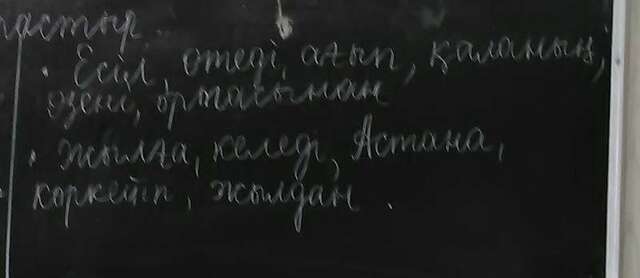 растыр.
· Есіл, өтеді, ағып, қаланың,
өзені, ортасынан
· жылға, келеді, Астана,
көркейіп, жылдан.